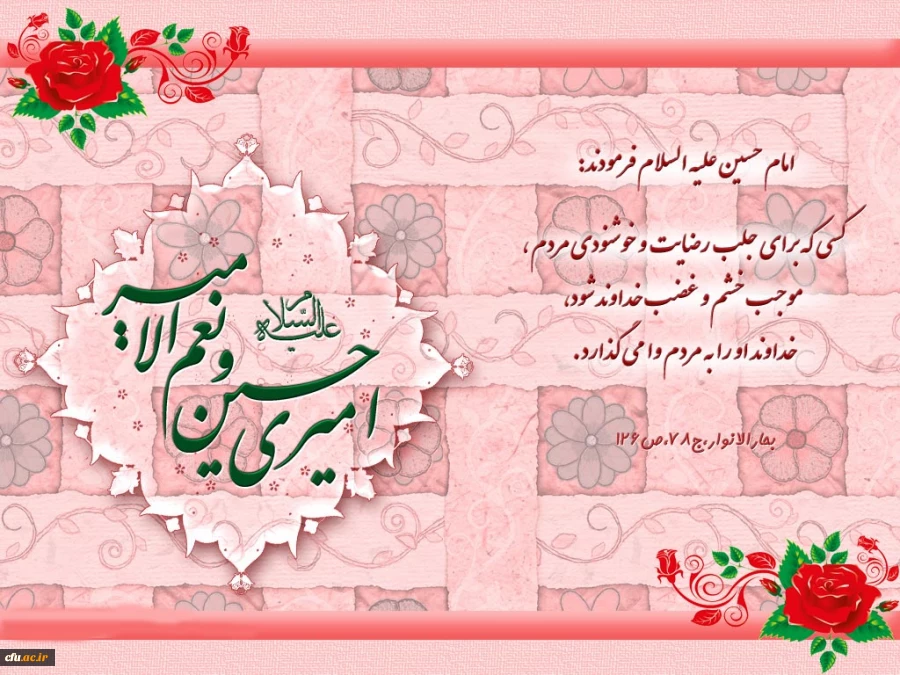 امام حسین علیه السلام فرمودند:
کسی که برای جلب رضایت و خوشنودی مردم ،
موجب خشم و غضب خداوند شود،
خداوند او را به مردم وا می گذارد.
بحارالانوار،ج۷۸،ص۱۲۶
امیری حسین و نعم الامیر
علیه السلام
cfu.ac.ir